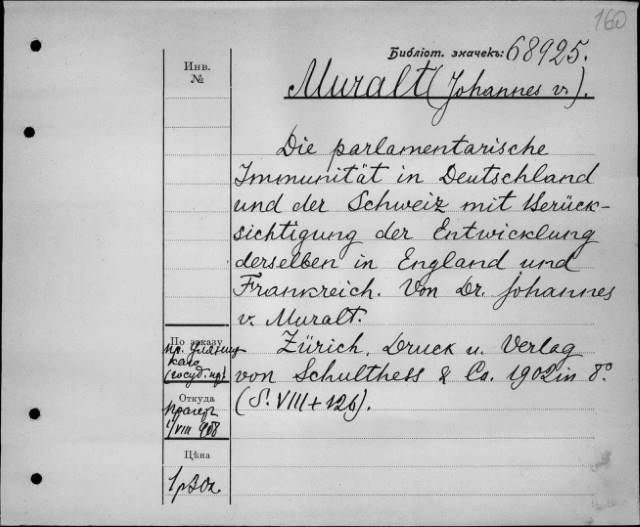 160
Библіот. значекъ: 68925.
Инв.
№
Muralt (Johannes v.).
Die parlamentarische
Immunität in Deutschland
und der Schweiz mit Berück-
sichtigung der Entwicklung
derselben in England und
Frankreich. Von Dr. Johannes
v. Muralt.
Zürich, Druck u. Verlag
von Schulthess & Co. 1902 in 8°.
(S. VIII + 126).
По заказу
пр.
(госуд. пр.)
Откуда
1/VIII 908
Цѣна
1 р 30 к.